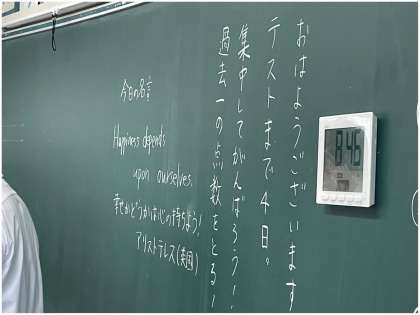 おはようございます
テストまで4日。
集中してがんばろう!
過去一の点数をとる!
今日の名言
Happiness depends
upon ourselves.
幸せかどうかは心の持ちよう!
アリストテレス(英国)
8:46